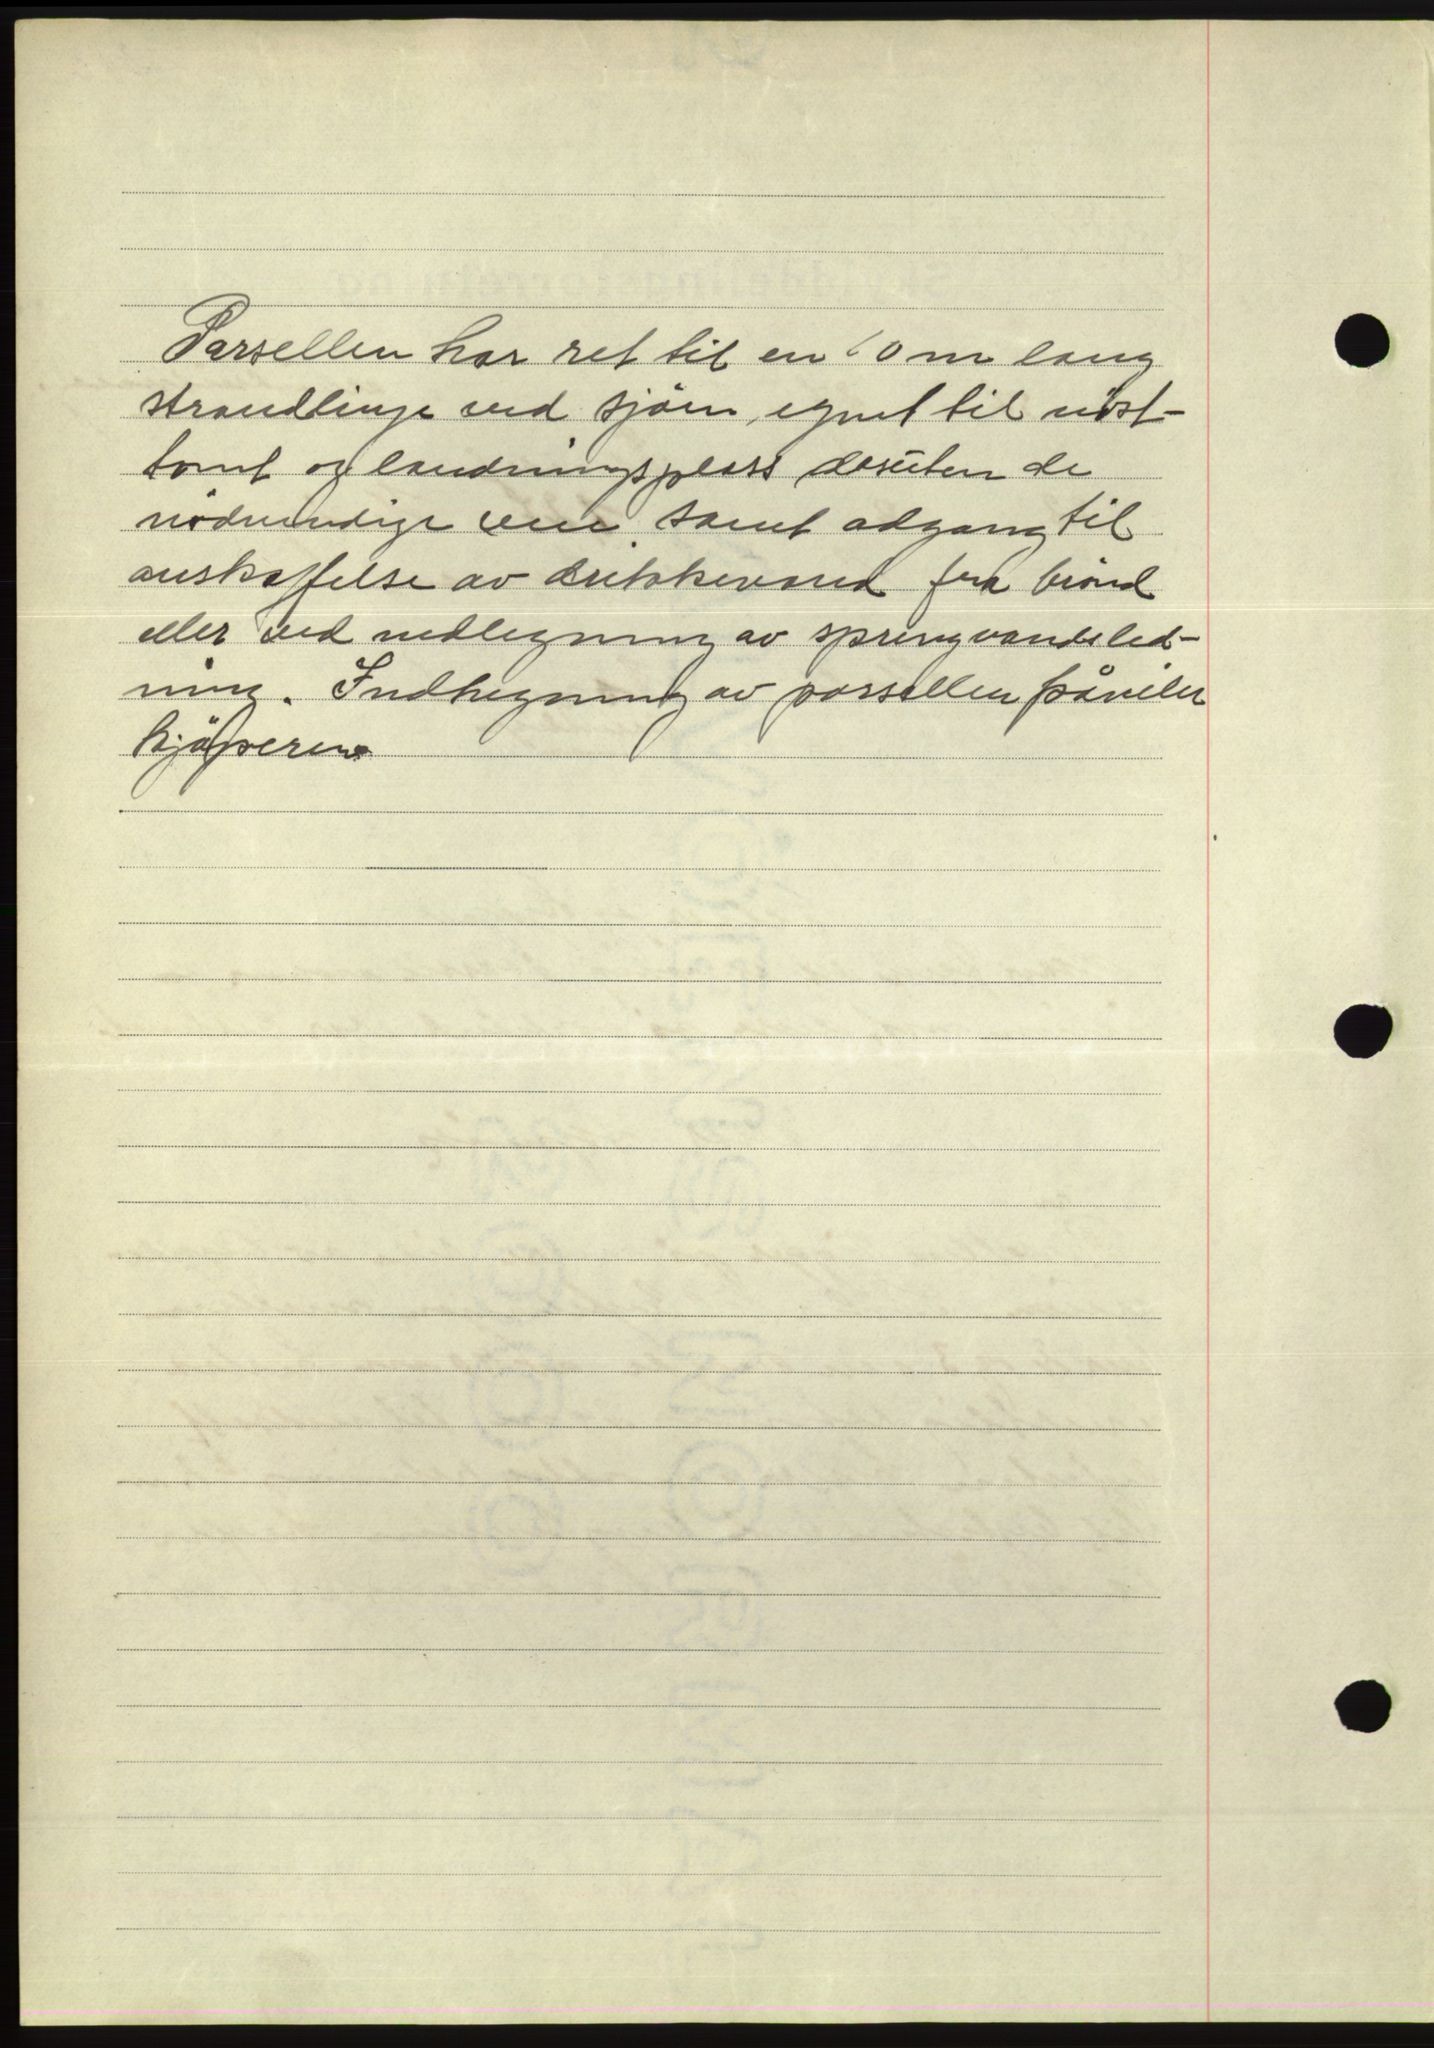 Parsellen har ret til en 10 m lang
strandlinje ved sjöen, egnet til nöst-
tomt og landningsplass desuten de
nödvendige veie samt adgang til
anskaffelse av drikkevand fra brönd
eller ved nedlegning av springvandsled-
ning. Indhegning av parsellen påviler
kjöperen.